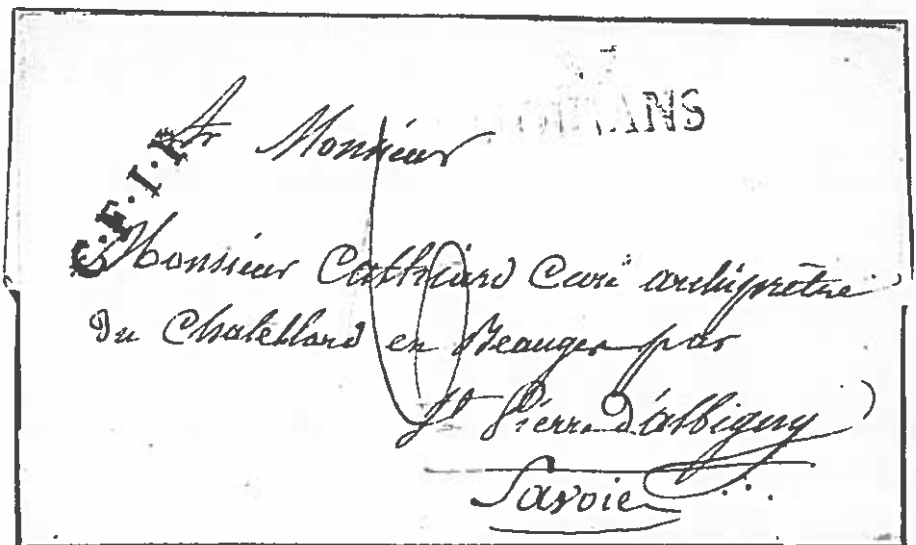 ANS
C.F.I.R
A Monsieur
Monsieur Catthiard Curé archiprêtre
Du Chatellard en Beauges par
St Pierre d'albigny
Savoie